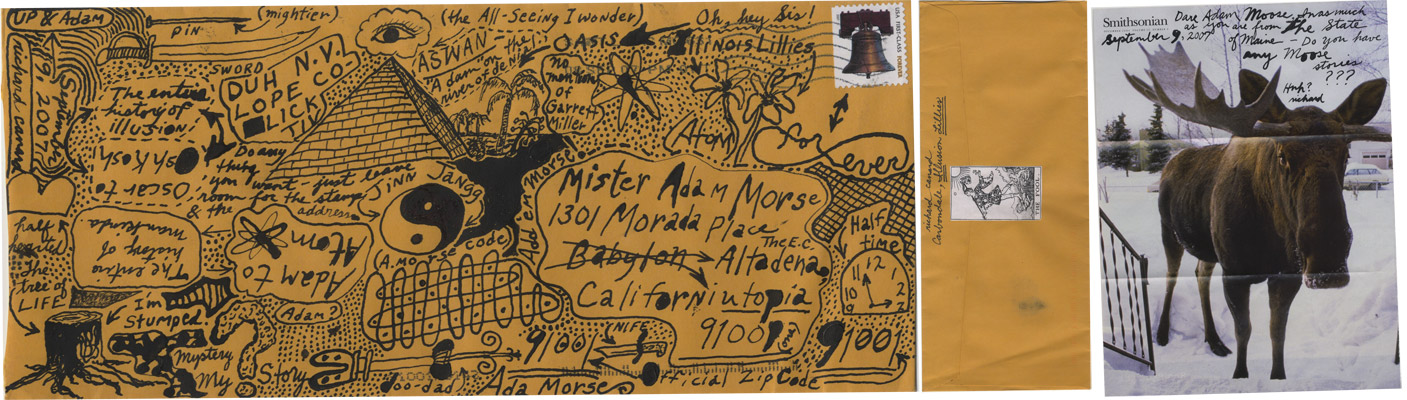 UP & Adam
pin
(mightier)
SWORD
richard canard
Sept 9, 2007
The entire
history of
illusion!
DUH N.V.
LOPE CO.
LICK
(the All-Seeing I wonder)
ASWAN
"Adam" on the
river of
OASIS
no
mention
of
Garrett
Miller
Oh, hey Sis!
Illinois Lillies
USA FIRST-CLASS FOREVER
Atom
for
ever
Oscar to
Do any
thing
you want - just leave
room for the stamp
& the
address
JiNN
Jangg
Add en Morse
Mister Adam Morse
1301 Morada Place
Babylon
The E.C.
Altadena,
Californiutopia
91001
91001
91001
Half
time
11 12 1
10 2
9
half
hearted
The
tree of
LIFE
The entire
history of
Adam to
Atom
Adam?
(A. morse
code)
I'm
Stumped
Mystery
My
Story
doo-dad
Ada Morse
(NIFE)
official Zip Code
richard canard
Carbondale, Illusion Lillies
THE FOOL
Smithsonian
Dare Adam Moose, Inasmuch
as you are from the State
September 9, 2007
of Maine - Do you have
any Moose
stories
???
Huh?
richard